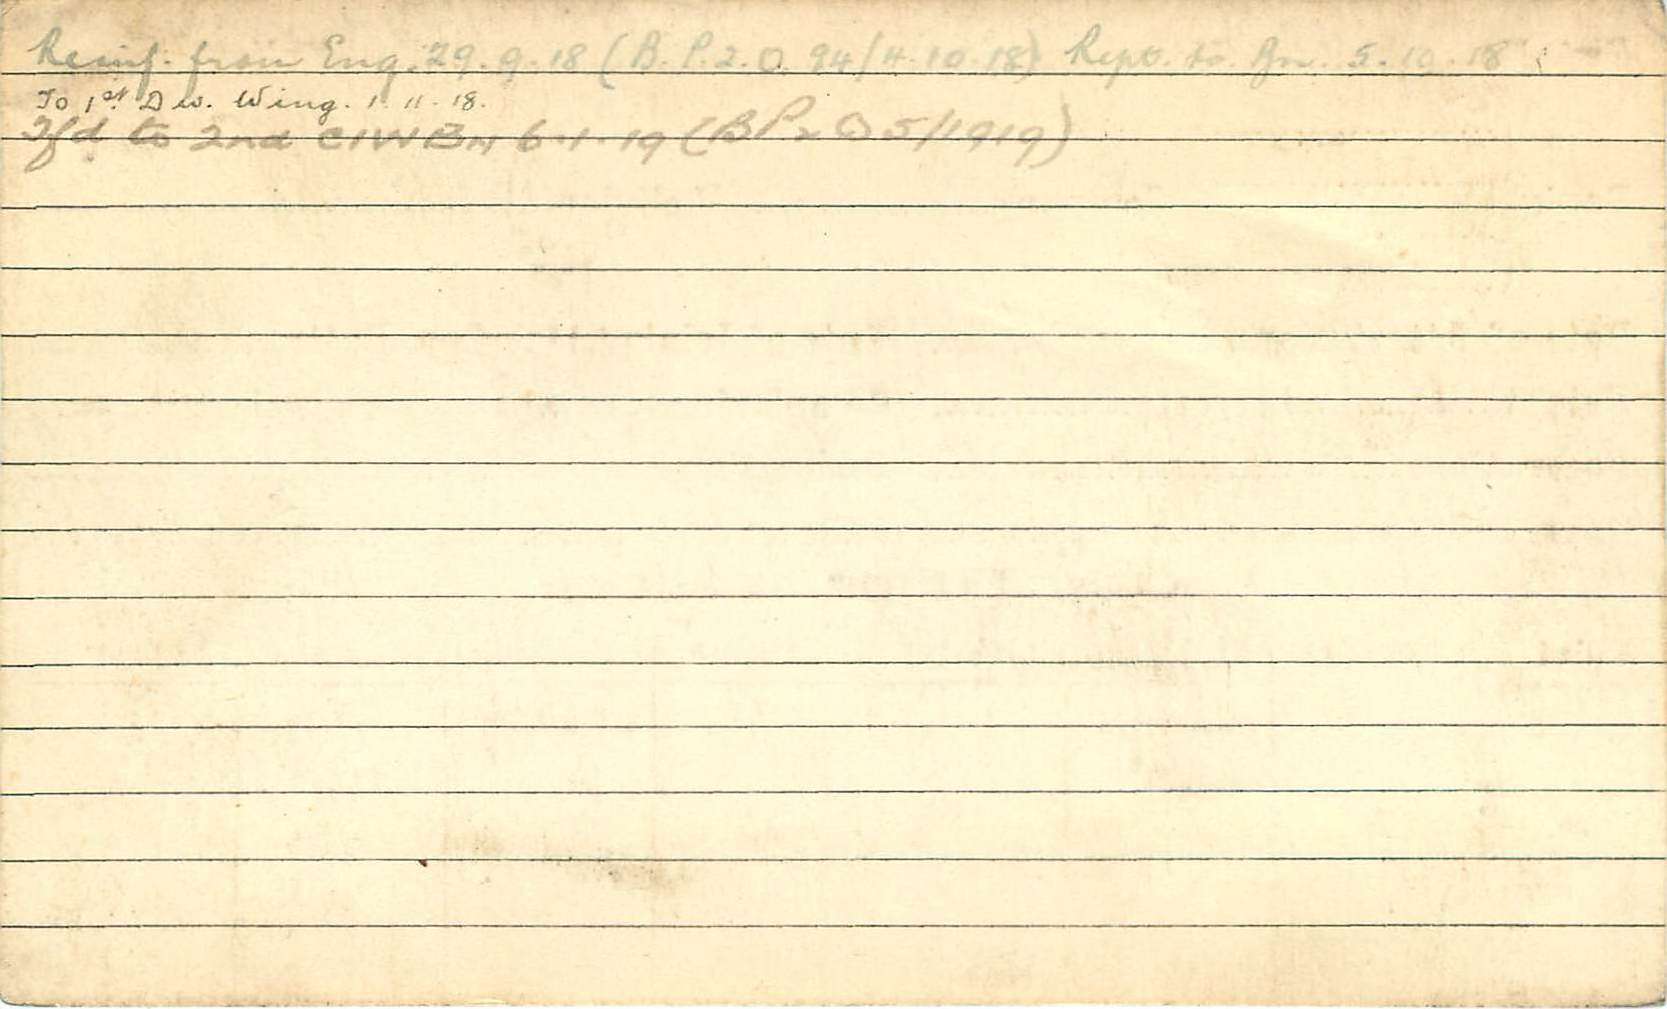 Reinf. from Eng. 29.9.18 (B.P.2.O. 94/4.10.18) Repo. to Bn. 5.10.18
To 1st Div. Wing. 1.11.18.
Tfd to 2nd CIWBn 6.1.19 (BP2O 5/1919)